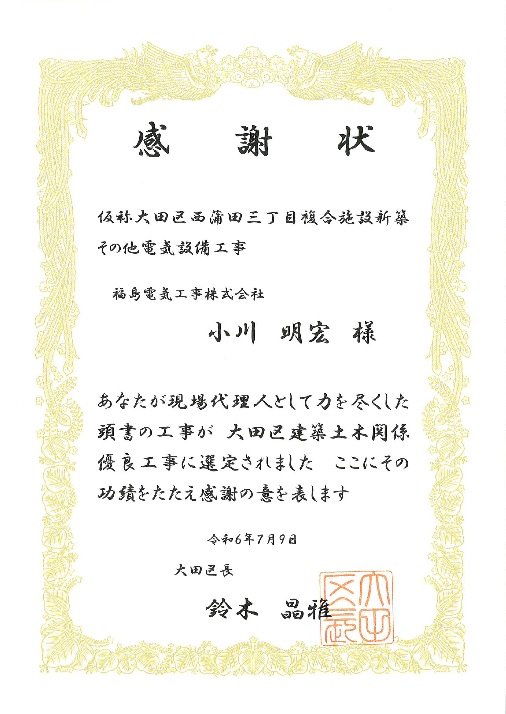 感謝状
仮称大田区西蒲田三丁目複合施設新築
その他電気設備工事
福島電気工事株式会社
小川 明宏 様
あなたが現場代理人として力を尽くした
頭書の工事が 大田区建築土木関係
優良工事に選定されました ここにその
功績をたたえ感謝の意を表します
令和6年7月9日
大田区長
鈴木 晶雅